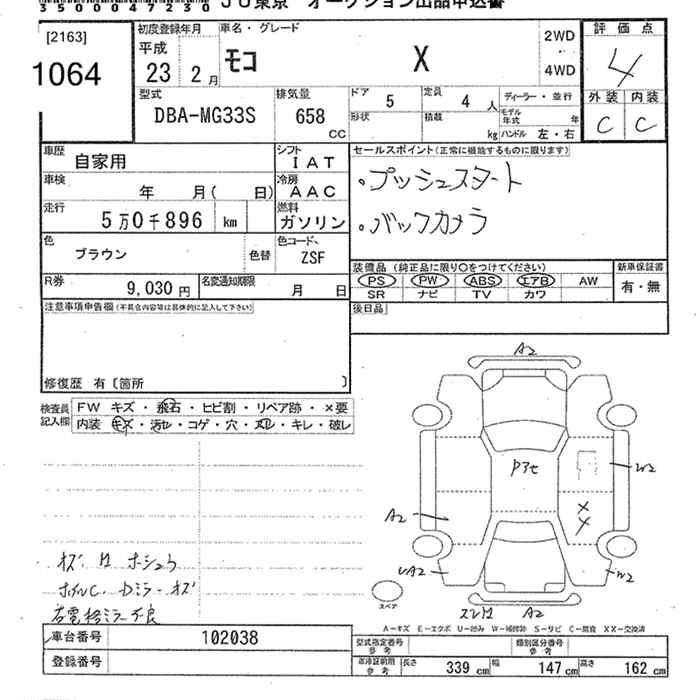 35000047230 JU東京 オークション出品申込書
[2163]
1064
初度登録年月
平成
23 2月
車名・グレード
モコ X
2WD
・
4WD
評価点
4
外装 内装
C C
型式
DBA-MG33S
排気量
658
CC
ドア 5
定員 4 人
形状
積載 kg
ディーラー・並行
モデル年式 年
ハンドル 左・右
車歴
自家用
シフト
IAT
車検
年 月( 日)
冷房
AAC
走行
5万0千896 km
燃料
ガソリン
色
ブラウン
色替
色コード
ZSF
R券
9,030円
名変通知期限
月 日
セールスポイント(正常に機能するものに限ります)
・プッシュスタート
・バックカメラ
装備品(純正品に限り○をつけてください)
PS PW ABS エアB AW
SR ナビ TV カワ
新車保証書
有・無
後日品
注意事項申告欄(不具合内容等は具体的に記入して下さい)
修復歴 有〔箇所 〕
検査員
記入欄
FW キズ・飛石・ヒビ割・リペア跡・×要
内装 キズ・汚レ・コゲ・穴・スレ・キレ・破レ
A2
Pアセ
W2
A2
UA2
W2
A2
スペア
A-キズ E-エクボ U-凹み W-補修跡 S-サビ C-腐食 XX-交換済
車台番号 102038
登録番号
型式指定番号
参考
類別区分番号
参考
車庫証明用
参考
長さ 339 cm 幅 147 cm 高さ 162 cm